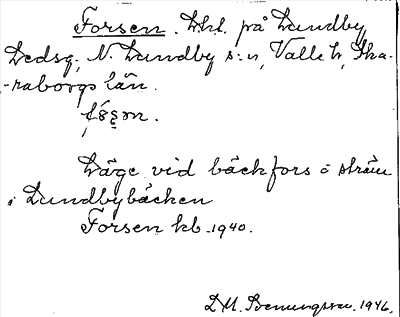 Forsen. Lht. på Lundby
Dedsg., N. Lundby s:n, Valle h, Ska-
-raborgs län.
fɷ́ʂm.
Läge vid bäckfors o ström
i Lundbybäcken
Forsen kb. 1940.
D.M. Svenungsson. 1946.